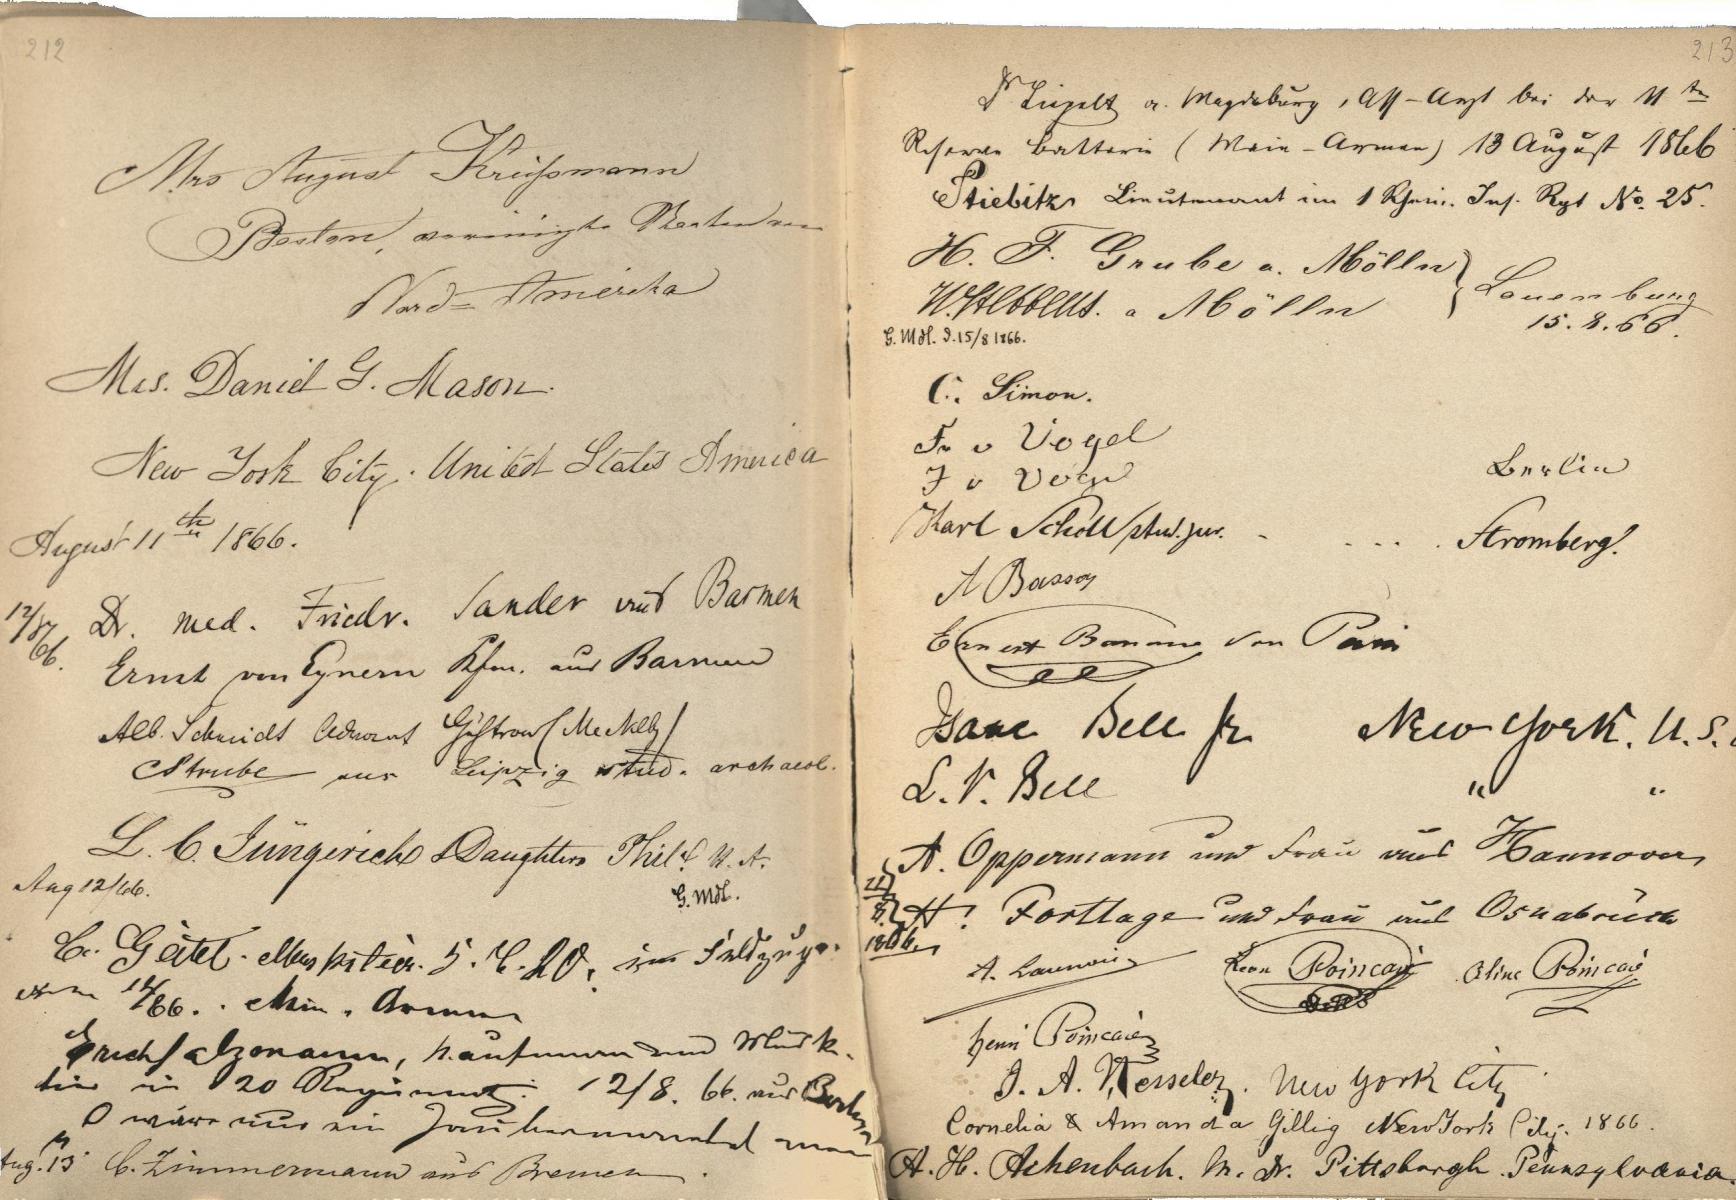 212
Mrs August
Boston, vereinigte Staaten von
Nord-Amerika
Mrs. Daniel G. Mason.
New York City. United States America
August 11th 1866.
12/8 66. Dr. med. Friedr. Sander aus Barmen
Ernst von Eynern Kfm. aus Barmen
Alb. Schmidt Advocat Güstrow (Mecklbg)
CStrube aus Leipzig stud. archaeol.
L. C. Jüngerich & Daughters Phil. U. A.
Aug 12/66.
G. Mdl.
C. im Feldzuge.
12/66. Main. Armee
Kaufmann und Muske-
tier im 20 Regiment. 12/8. 66. aus
O wäre nur ein Zaubermantel mein
Aug. 13 C. Zimmermann aus Bremen.
213
Dr a. Magdeburg, Ass-Arzt bei der 11ten
Reserve Batterie (Main-Armee) 13 August 1866
Stiebitz Lieutenant im 1 Rhein. Inf. Rgt No. 25.
H. F. Grube a. Mölln } Lauenburg
a Mölln 15. 8. 66.
G. Mdl. d. 15/8 1866.
C. Simon.
Fr v Vogel
J v Berlin
Karl Schott stud. jur. - . . . . Stromberg.
A
Ernest von Paris
Isaac Bell Jr New York. U. S.
L. V. Bell " "
A. Oppermann und Frau aus Hannover
21/8 1866. H. Fortlage und Frau aus Osnabrück
A. Launois Leon Poincaré Aline Poincaré
henri Poincaré
J. A. Wesseler. New York City
Cornelia & Amanda Gillig New York City. 1866.
A. H. Achenbach. M. Dr. Pittsburgh. Pennsylvania.